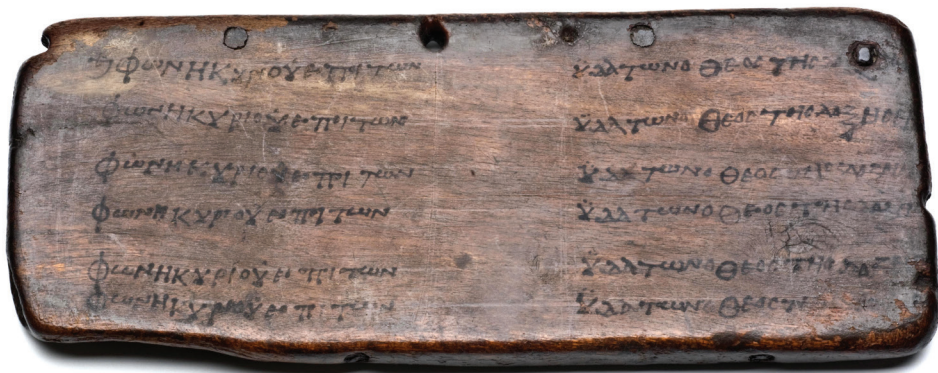 ϕωνη κυριου επι των ϋδατων ο θεος της
ϕωνη κυριου επι των ϋδατων ο θεος της δοξης
ϕωνη κυριου επι των ϋδατων ο θεος
ϕωνη κυριου επι των ϋδατων ο θεος της
ϕωνη κυριου επι των ϋδατων ο θεος της
ϕωνη κυριου επι των ϋδατων ο θεος